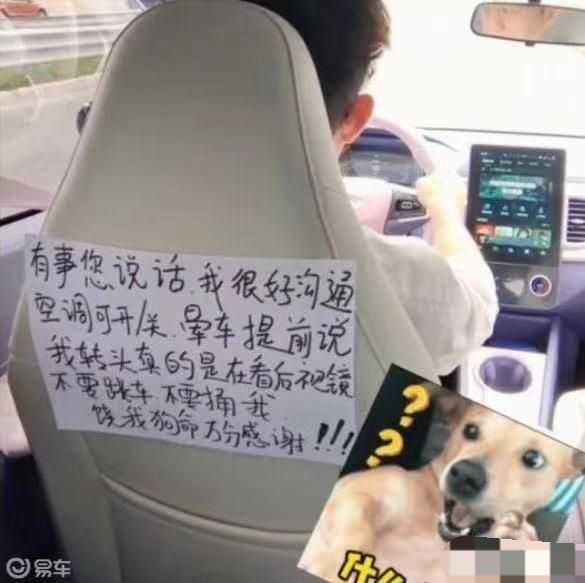 有事您说话.我很好沟通
空调可开/关.晕车提前说
我转头真的是在看后视镜
不要跳车 不要捅我
饶我狗命万分感谢!!!
??
什么
易车